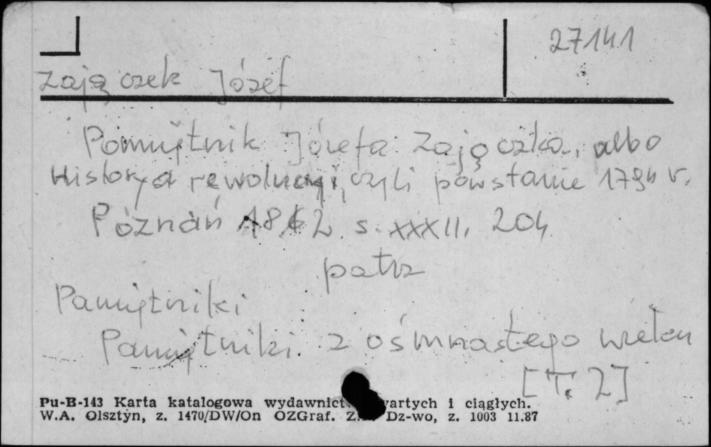 27141
Zajączek Józef
Pamiętnik Józefa Zajączka, albo
Historya rewolucyi, czyli powstanie 1794 r.
Poznań 1862 s. XXXII, 204
patrz
Pamiętniki
Pamiętniki z ośmnastego wieku
[T. 2]
Pu-B-143 Karta katalogowa wydawnictw zwartych i ciągłych.
W.A. Olsztyn, z. 1470/DW/On OZGraf. Dz-wo, z. 1003 11.87